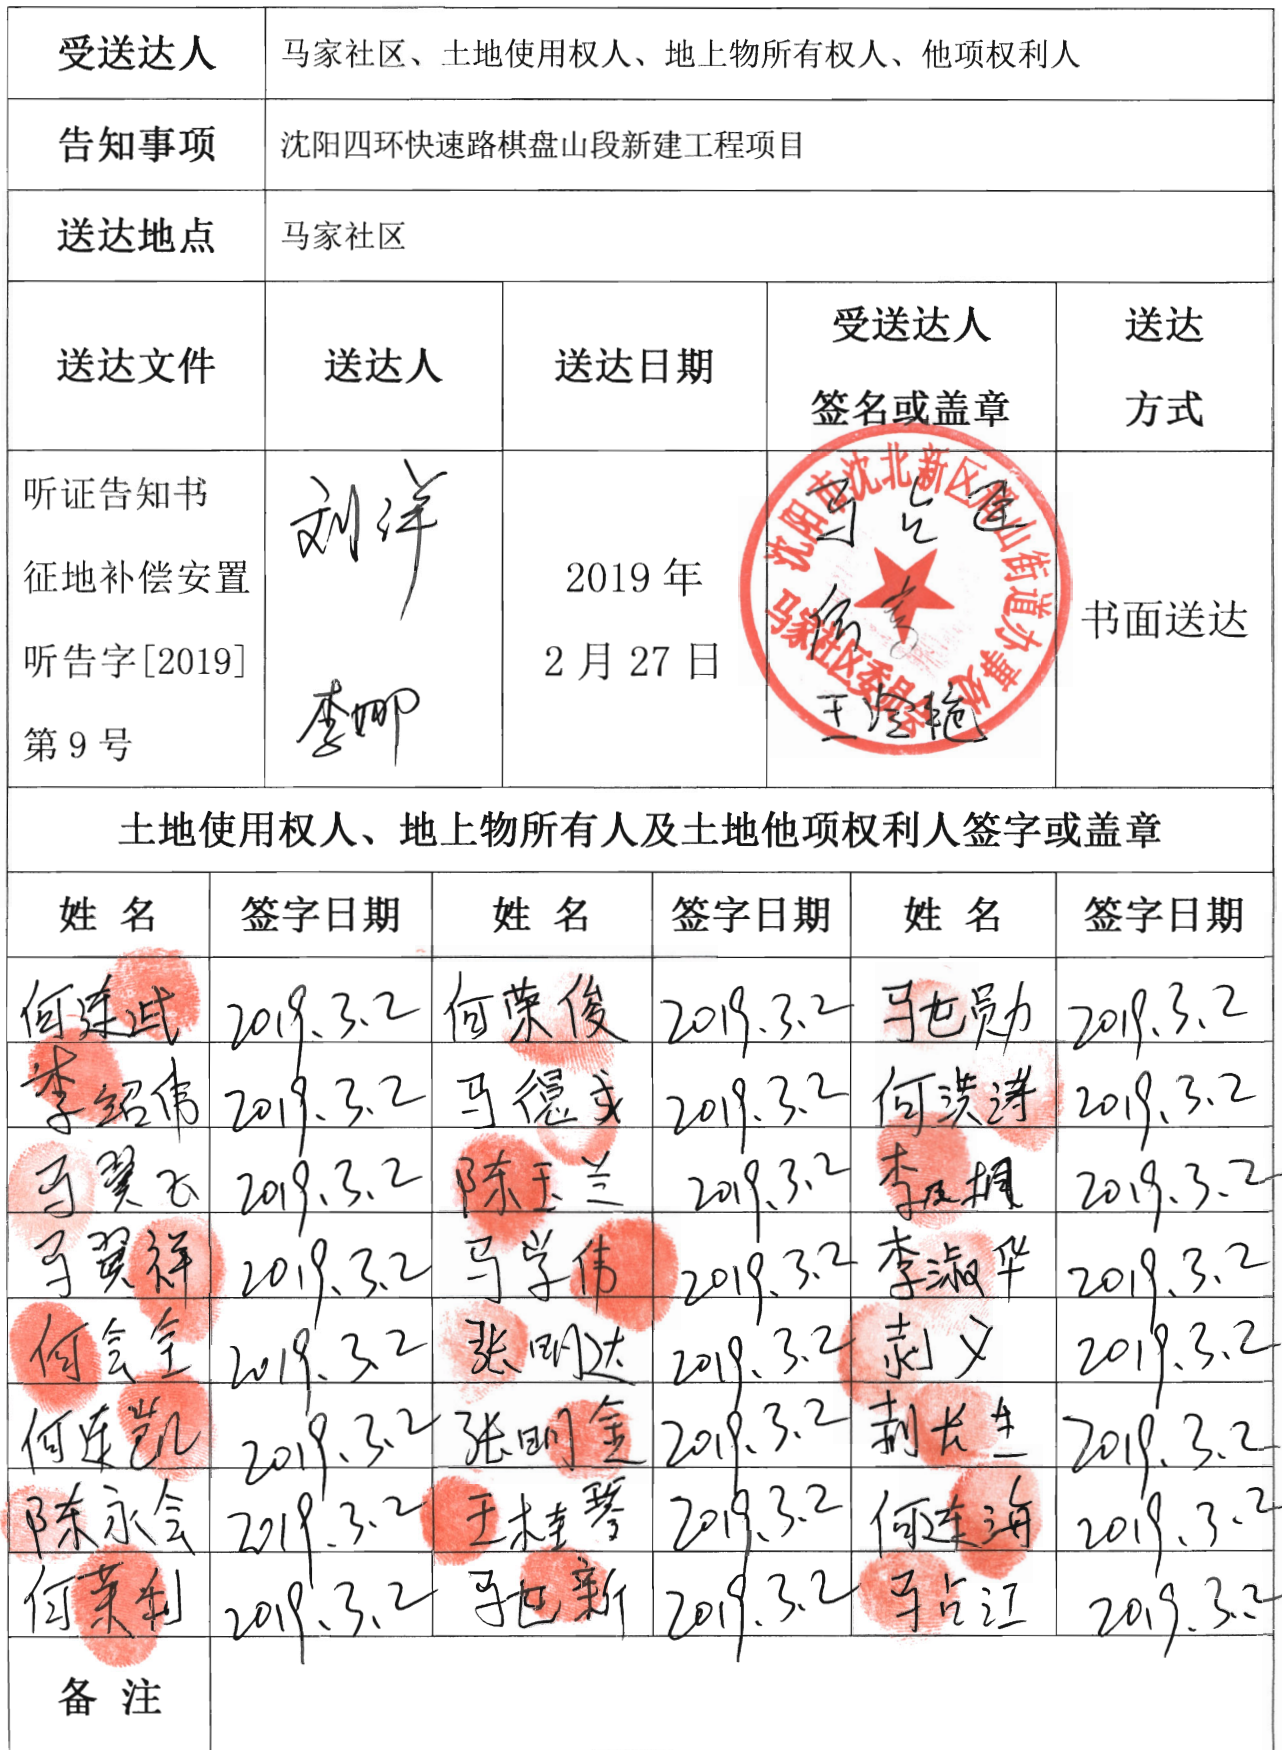 受送达人 马家社区、土地使用权人、地上物所有权人、他项权利人
告知事项 沈阳四环快速路棋盘山段新建工程项目
送达地点 马家社区
送达文件 送达人 送达日期 受送达人签名或盖章 送达方式
听证告知书
征地补偿安置
听告字[2019]
第9号
刘洋
李娜
2019年
2月27日
马占
王 艳
沈阳市沈北新区 山街道办事处
马家社区委员会
书面送达
土地使用权人、地上物所有人及土地他项权利人签字或盖章
姓名 签字日期 姓名 签字日期 姓名 签字日期
何连武 2019.3.2 何荣俊 2019.3.2 马世勋 2019.3.2
李绍伟 2019.3.2 马德 2019.3.2 何洪涛 2019.3.2
马翼飞 2019.3.2 陈玉兰 2019.3.2 李 2019.3.2
马翼祥 2019.3.2 马学伟 2019.3.2 李淑华 2019.3.2
何会全 2019.3.2 张明达 2019.3.2 2019.3.2
何连凯 2019.3.2 张明金 2019.3.2 长生 2019.3.2
陈永会 2019.3.2 王桂琴 2019.3.2 何连海 2019.3.2
何荣利 2019.3.2 马世新 2019.3.2 马占江 2019.3.2
备注